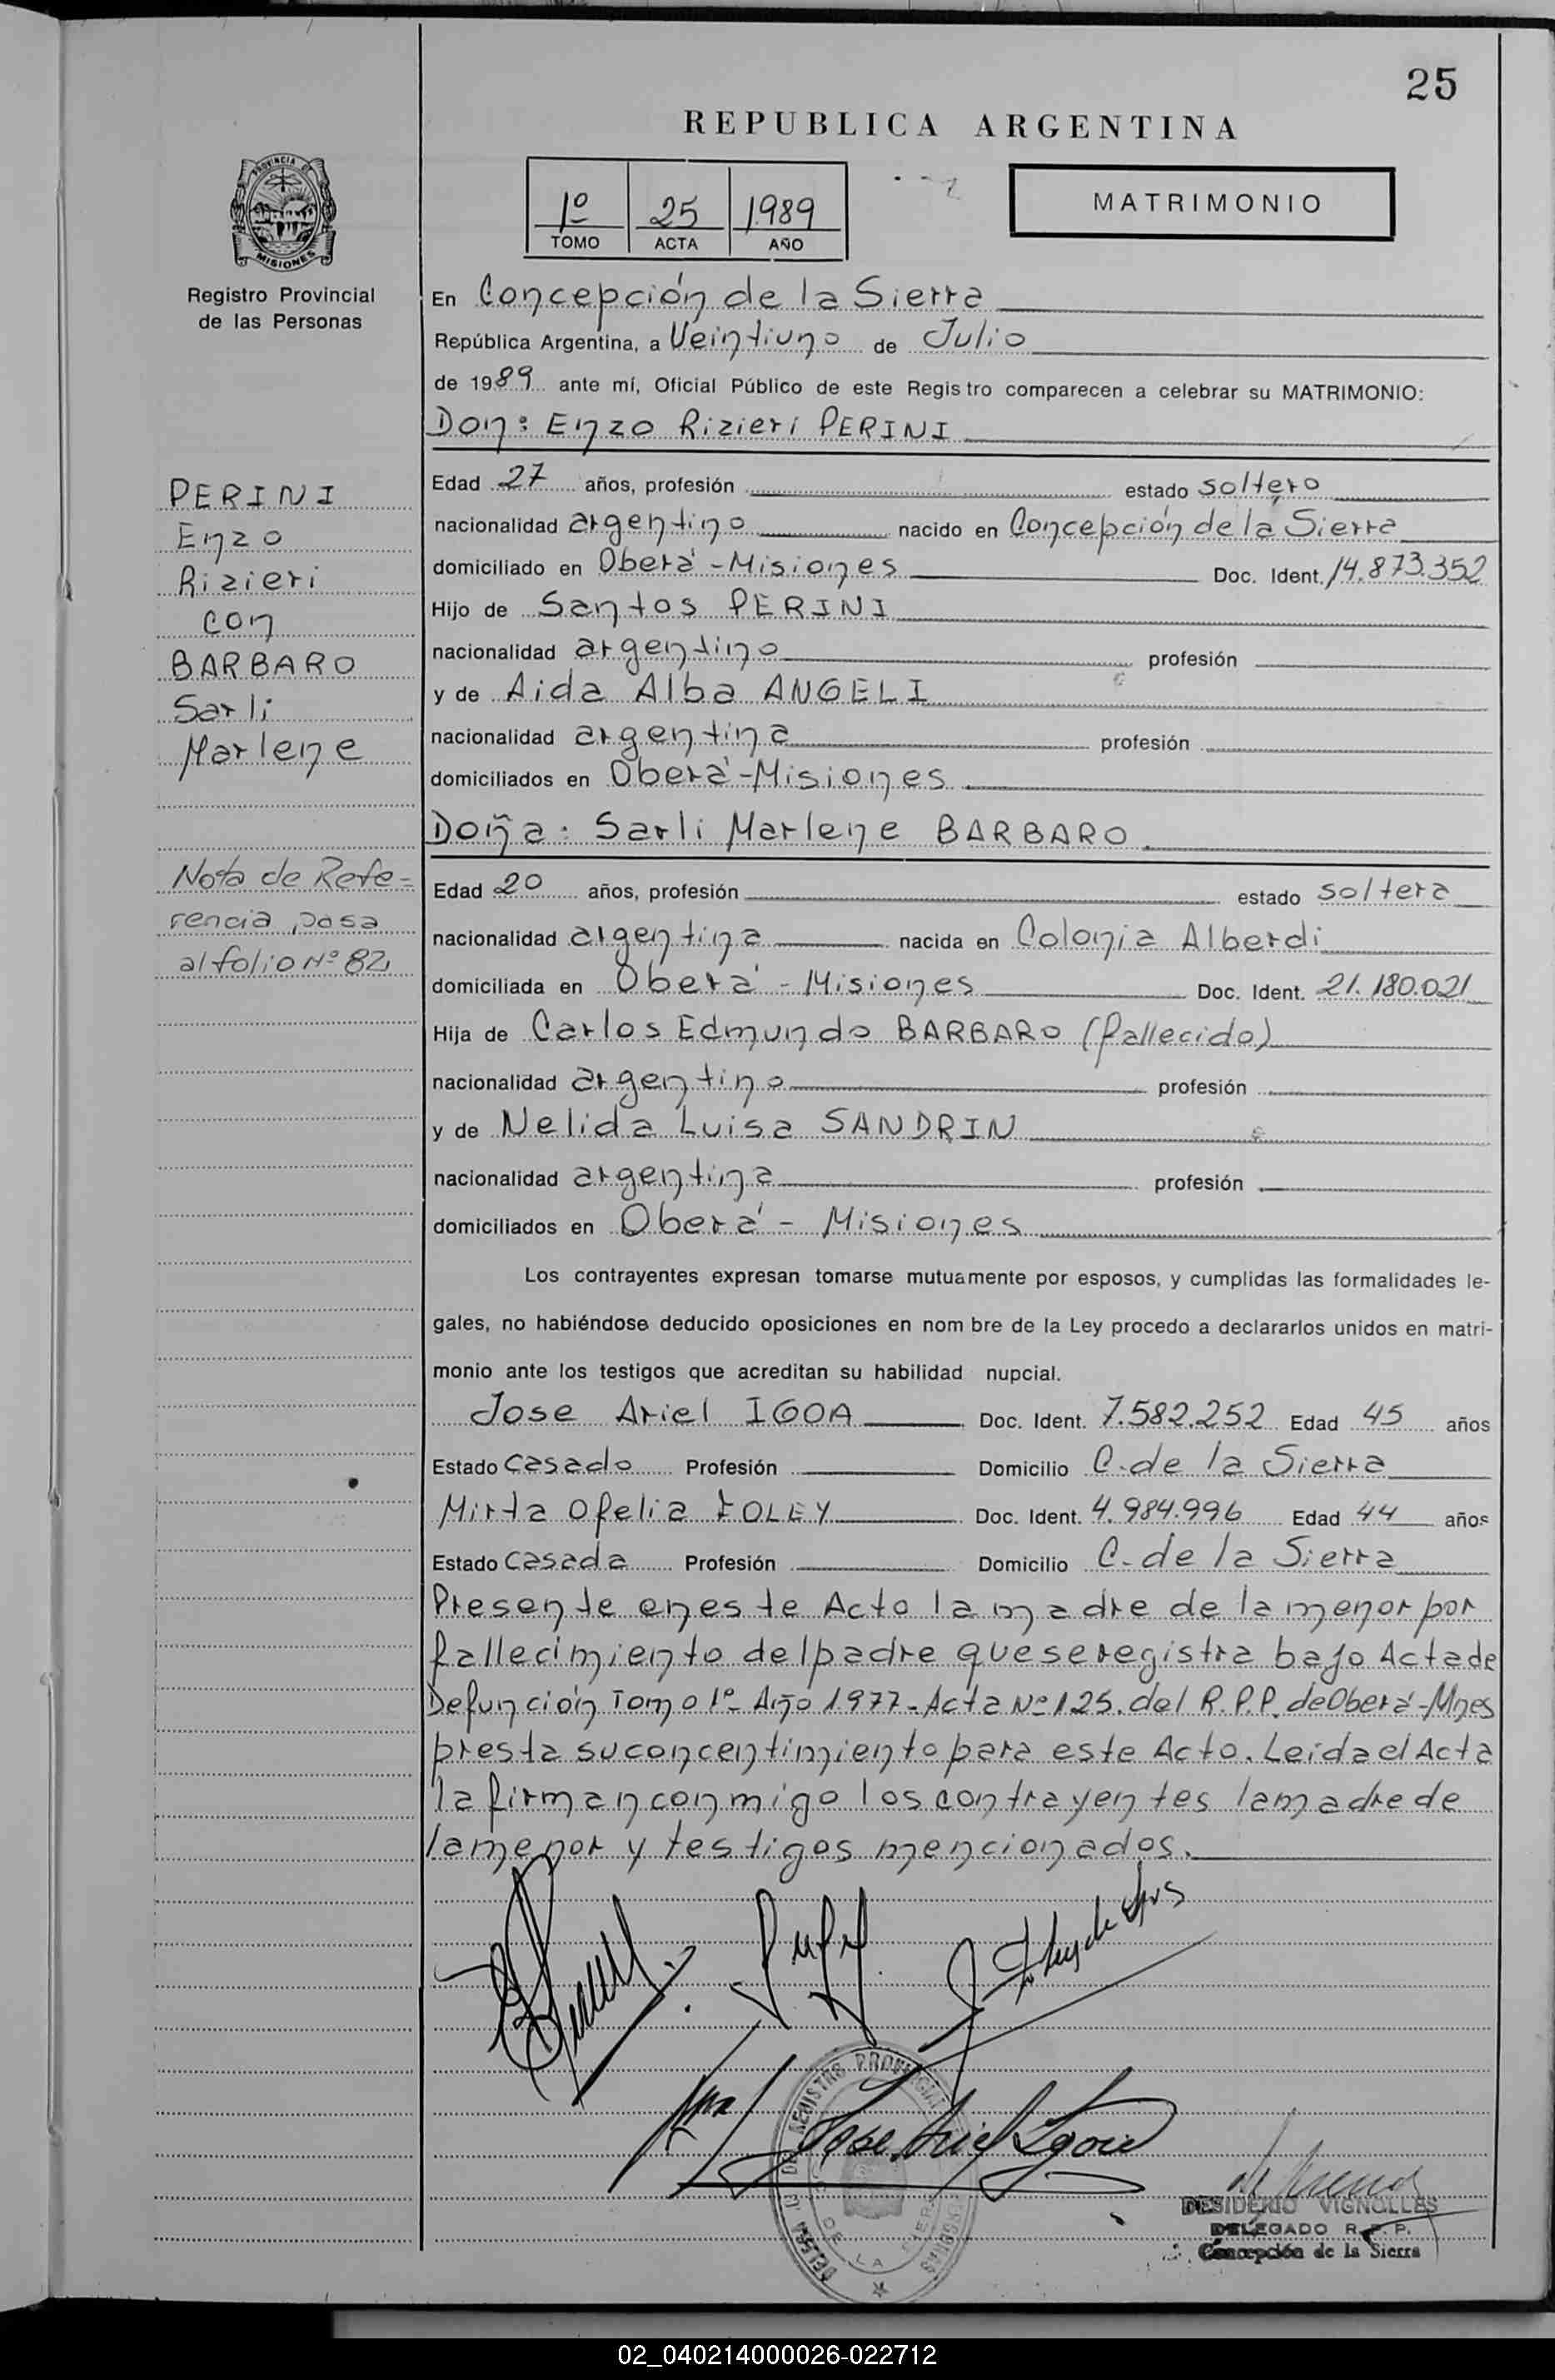 25
REPUBLICA ARGENTINA
1º 25 1989
TOMO ACTA AÑO
MATRIMONIO
PROVINCIA DE
MISIONES
Registro Provincial
de las Personas
En Concepción de la Sierra
República Argentina, a Veintiuno de Julio
de 1989 ante mí, Oficial Público de este Registro comparecen a celebrar su MATRIMONIO:
Don: Enzo Rizieri PERINI
PERINI
Enzo
Rizieri
con
BARBARO
Sarli
Marlene
Edad 27 años, profesión estado soltero
nacionalidad argentino nacido en Concepción de la Sierra
domiciliado en Oberá-Misiones Doc. Ident. 14.873.352
Hijo de Santos PERINI
nacionalidad argentino profesión
y de Aida Alba ANGELI
nacionalidad argentina profesión
domiciliados en Oberá-Misiones
Doña: Sarli Marlene BARBARO
Nota de Refe=
rencia pasa
al folio Nº 82
Edad 20 años, profesión estado soltera
nacionalidad argentina nacida en Colonia Alberdi
domiciliada en Oberá - Misiones Doc. Ident. 21.180.021
Hija de Carlos Edmundo BARBARO (fallecido)
nacionalidad argentino profesión
y de Nelida Luisa SANDRIN
nacionalidad argentina profesión
domiciliados en Oberá - Misiones
Los contrayentes expresan tomarse mutuamente por esposos, y cumplidas las formalidades le-
gales, no habiéndose deducido oposiciones en nom bre de la Ley procedo a declararlos unidos en matri-
monio ante los testigos que acreditan su habilidad nupcial.
Jose Ariel IGOA Doc. Ident. 7.582.252 Edad 45 años
Estado casado Profesión Domicilio C. de la Sierra
Mirta Ofelia FOLEY Doc. Ident. 4.984.996 Edad 44 años
Estado casada Profesión Domicilio C. de la Sierra
Presente en este Acto la madre de la menor por
fallecimiento del padre que se registra bajo Acta de
Defunción Tomo 1º- Año 1977-Acta Nº 125. del R.P.P. de Oberá-Mnes
presta su concentimiento para este Acto. Leida el Acta
la firman conmigo los contrayentes la madre de
la menor y testigos mencionados.
Jose Ariel Igoa
DESIDERIO VIGNOLLES
DELEGADO R. P. P.
Concepción de la Sierra
02_040214000026-022712